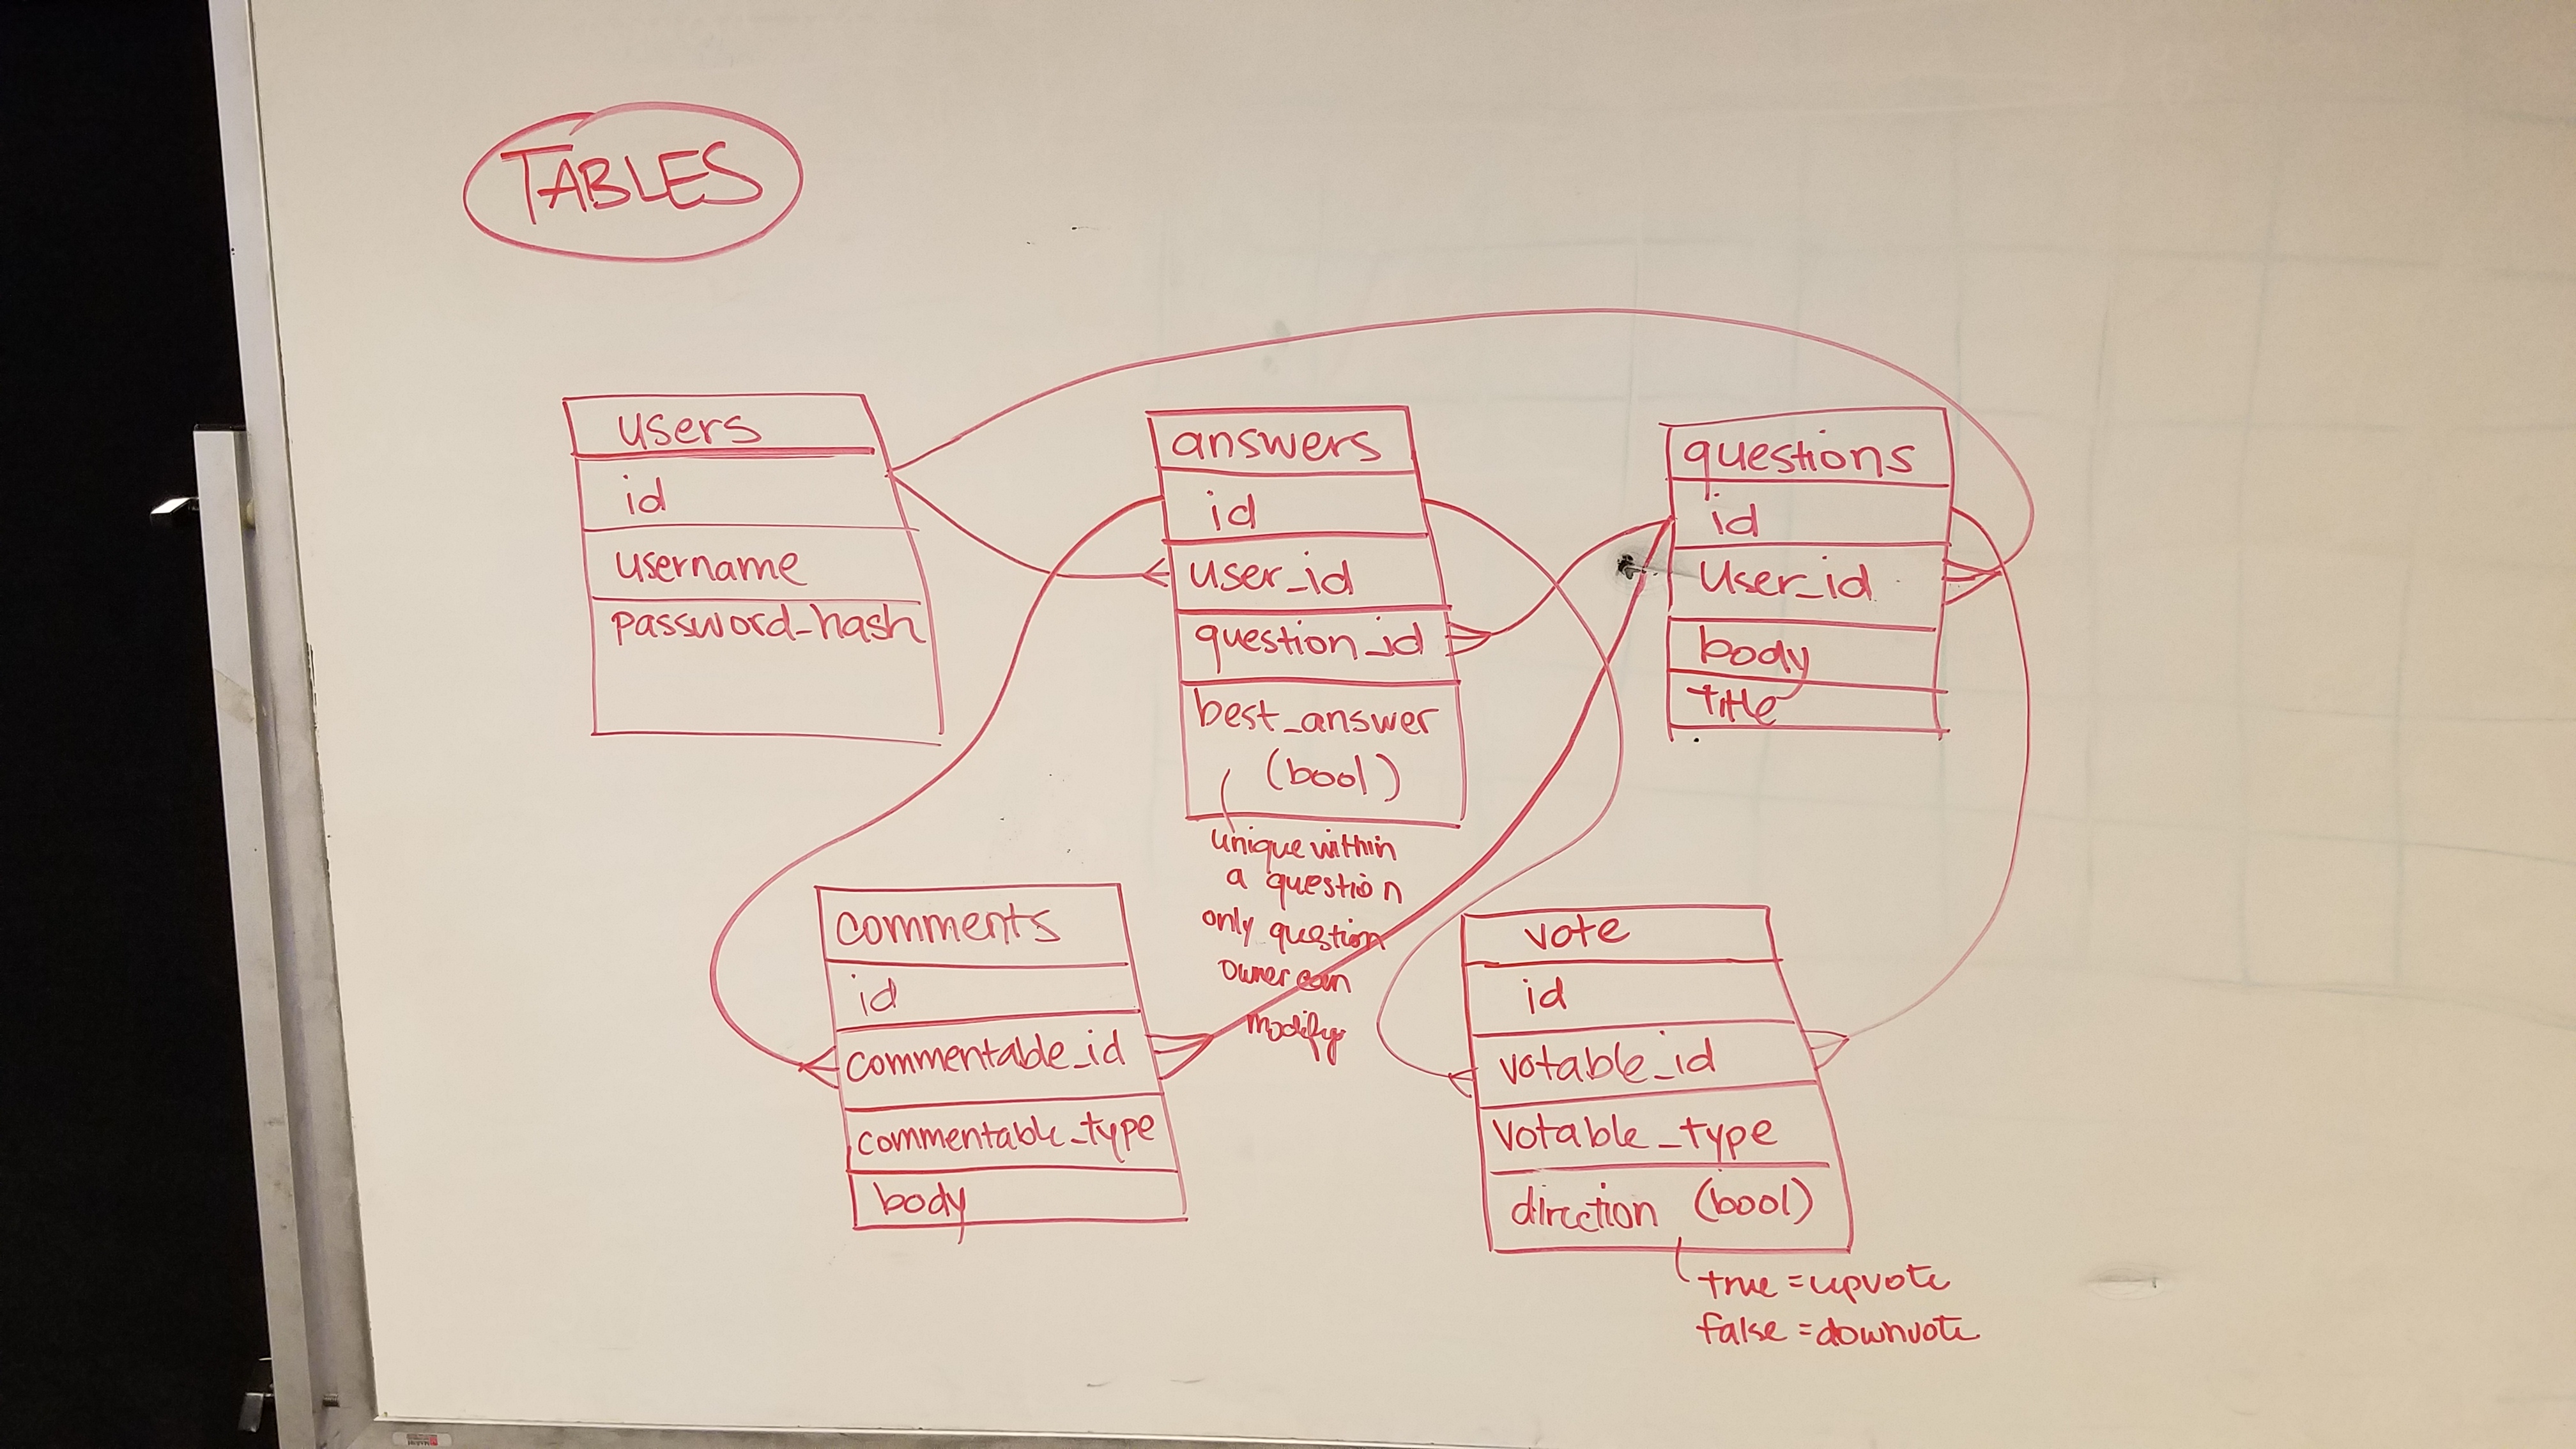 TABLES
users
id
username
password_hash
answers
id
user_id
question_id
best_answer
(bool)
unique within
a question
only question
owner can
modify
questions
id
user_id
body
title
comments
id
commentable_id
commentable_type
body
vote
id
votable_id
votable_type
direction (bool)
true = upvote
false = downvote